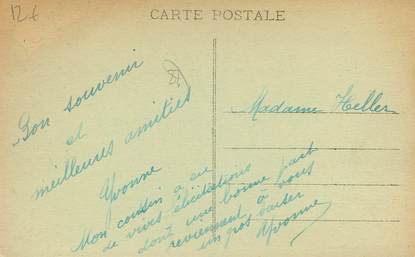 12.6
CARTE POSTALE
Bon souvenir
et
meilleures amitiés
Yvonne
Mon cousin a eu
de vives félicitations
dont une bonne part
reviennent à vous
un gros baiser
Yvonne
Madame Heller